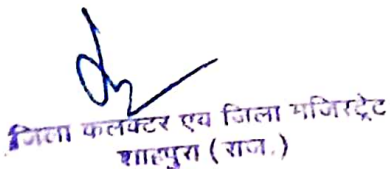 जिला कलक्टर एवं जिला मजिस्ट्रेट
शाहपुरा (राज.)